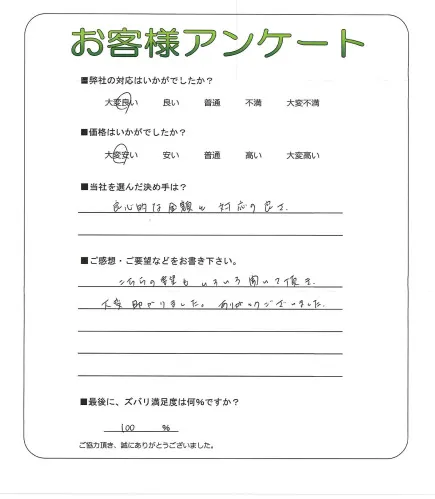 お客様アンケート
■弊社の対応はいかがでしたか?
大変良い 良い 普通 不満 大変不満
■価格はいかがでしたか?
大変安い 安い 普通 高い 大変高い
■当社を選んだ決め手は?
良心的な金額と 対応の良さ.
■ご感想・ご要望などをお書き下さい。
こちらの希望も いろいろ聞いて頂き
大変助かりました。ありがとうございました.
■最後に、ズバリ満足度は何%ですか?
100 %
ご協力頂き、誠にありがとうございました。